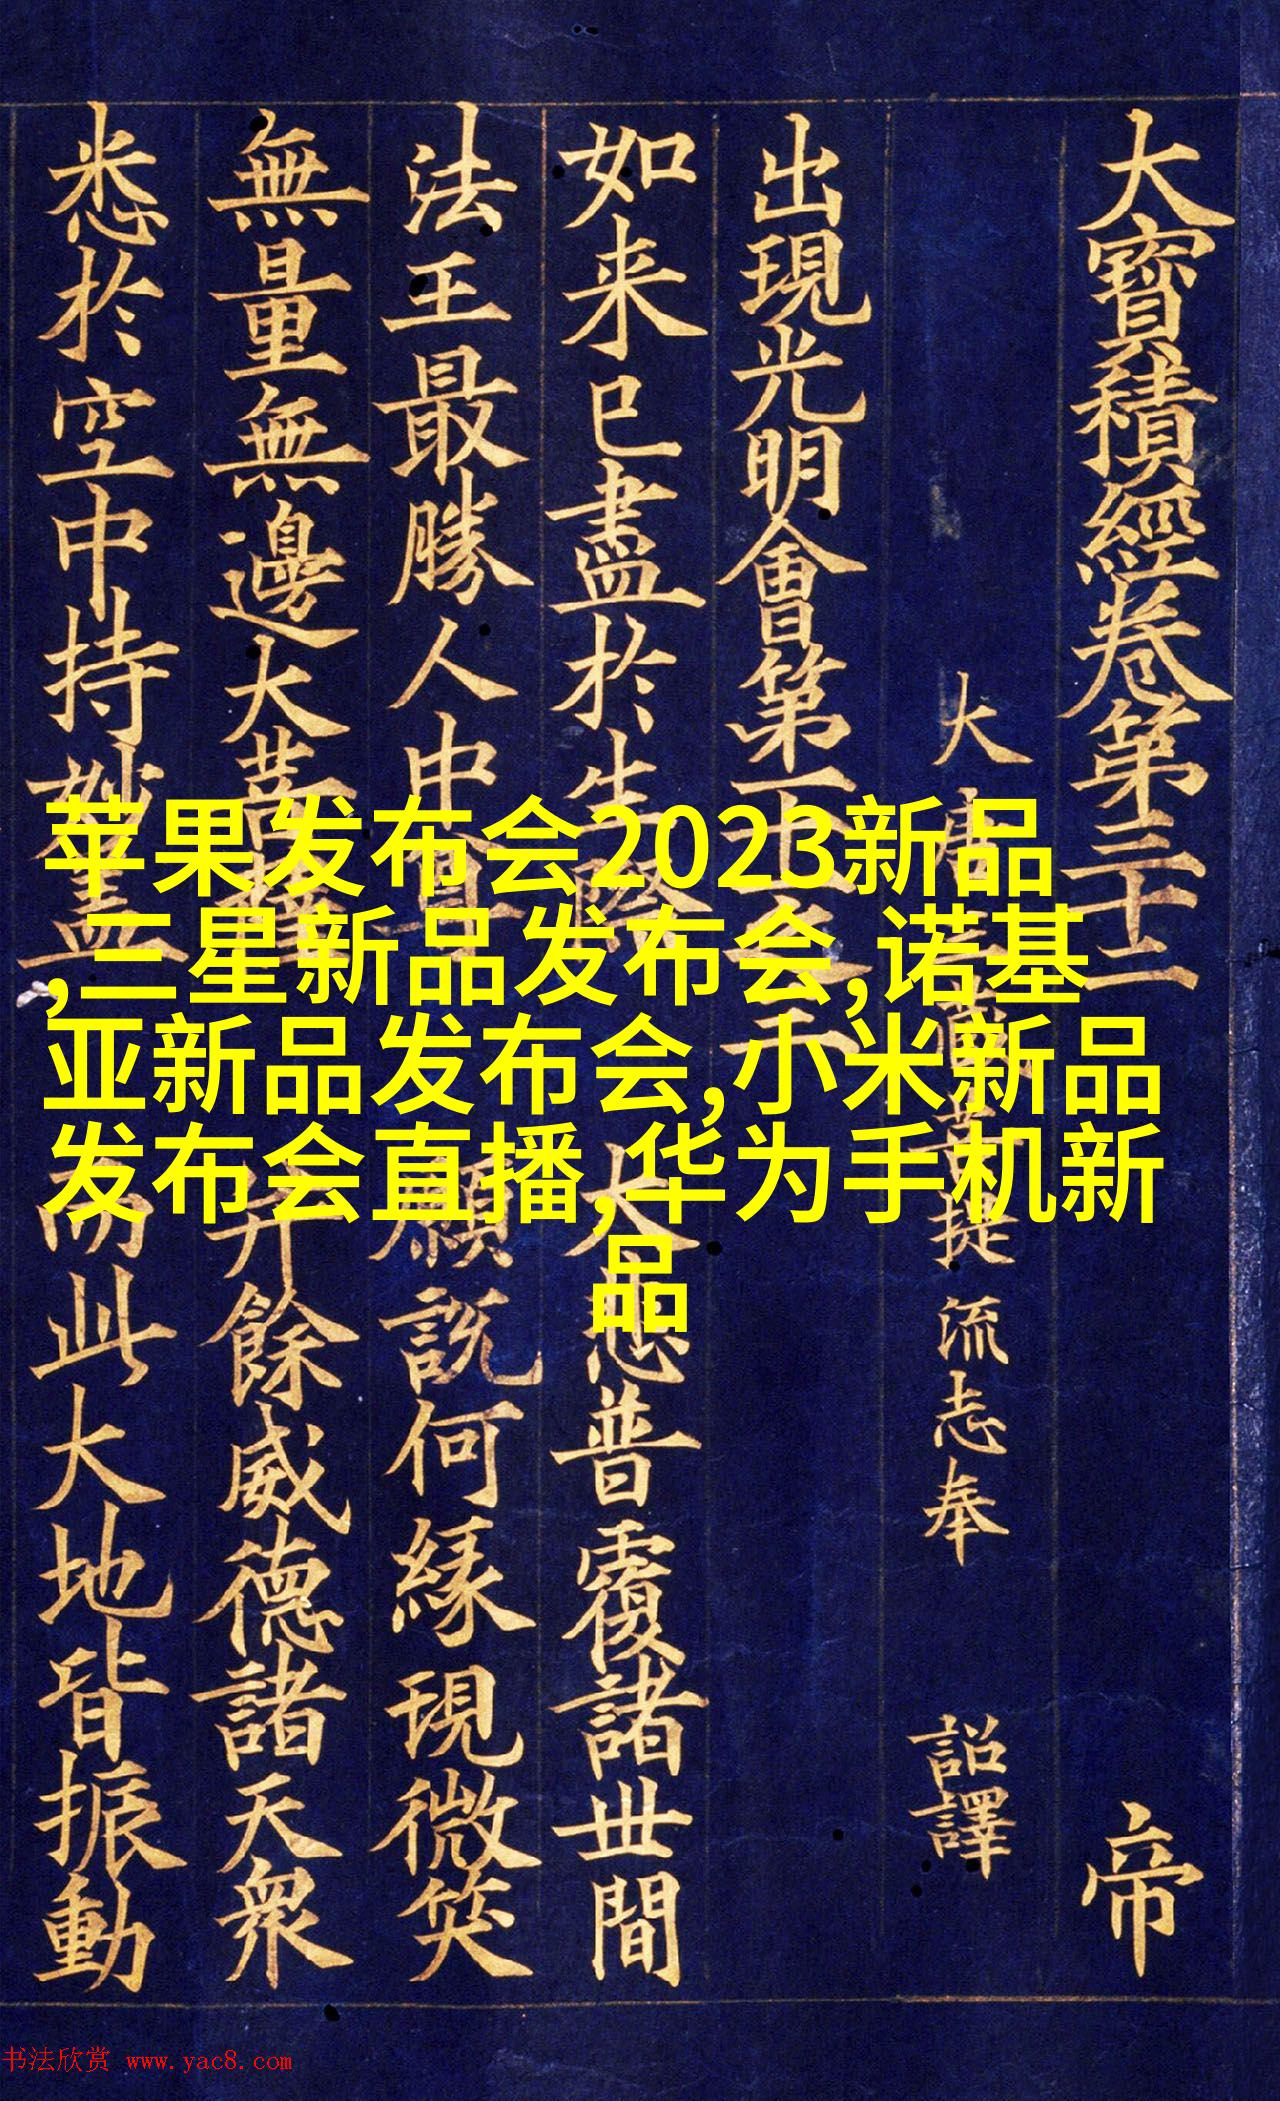 大寶積經卷第三十二 帝
大唐三藏菩提流志奉 詔譯
出現光明會第十一之三
如来已盡於生際 大悲普覆諸世間
法王最勝人中尊 願說何緣現微笑
無量無邊大菩薩 并餘威德諸天衆
悉於空中持妙盖 而此大地皆振動
苹果发布会2023新品
,三星新品发布会,诺基
亚新品发布会,小米新品
发布会直播,华为手机新
品
书法欣赏 www.yac8.com